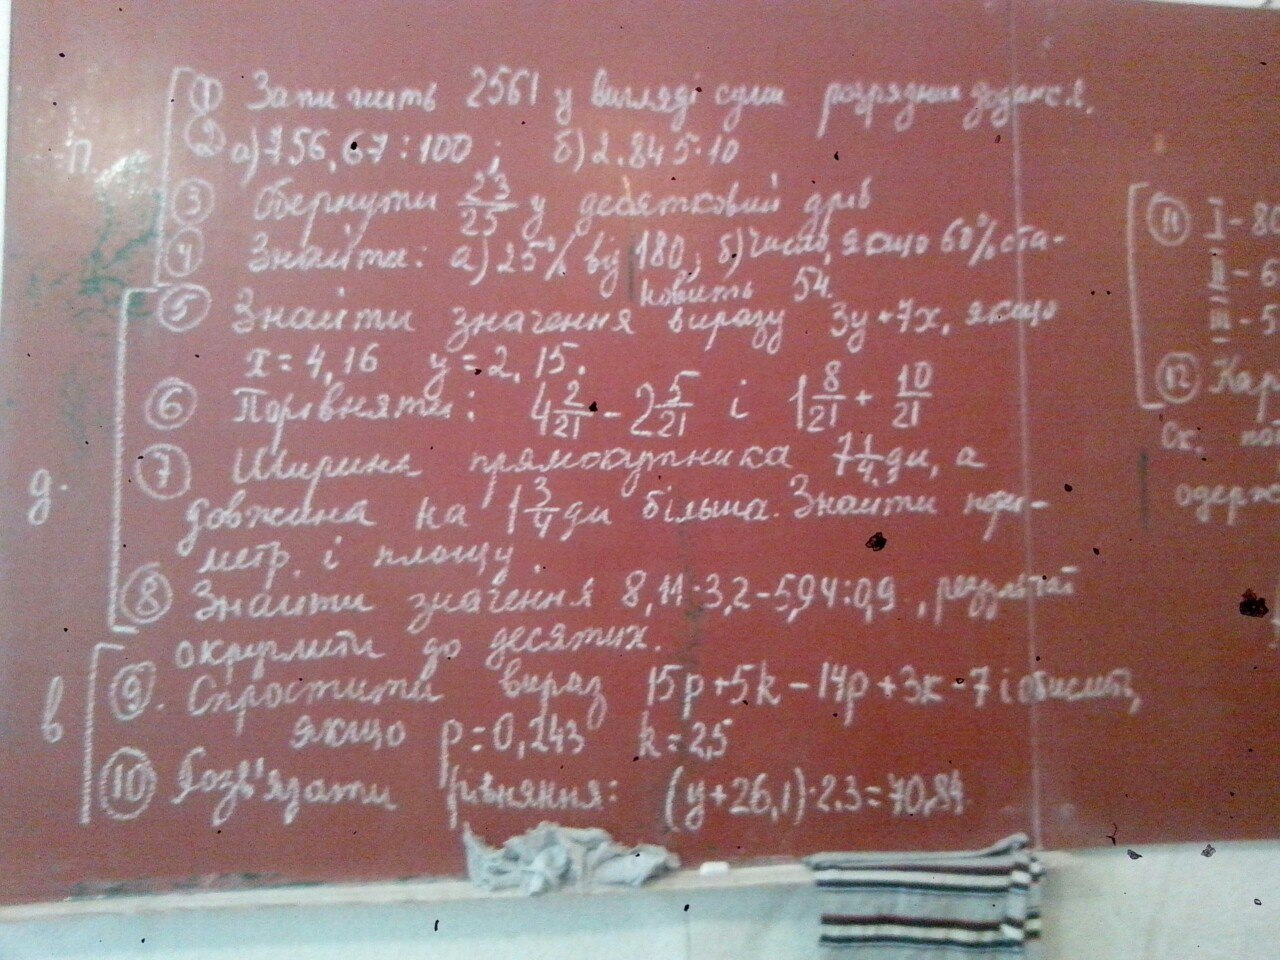 ① Запишіть 2561 у вигляді суми розрядних доданків.
П. ② а) 756,67 : 100 ; б) 2.845·10
③ Обернути 23/25 у десятковий дріб
④ Знайти: а) 25% від 180, б) число, якщо 60% ста-
новить 54.
⑤ Знайти значення виразу 3y+7x, якщо
x = 4,16 y = 2,15.
⑥ Порівняти: 4 2/21 - 2 5/21 і 1 8/21 + 10/21
д. ⑦ Ширина прямокутника 7 1/4 дм, а
довжина на 1 3/4 дм більша. Знайти пери-
метр. і площу
⑧ Знайти значення 8,11·3,2-5,94:0,9, результат
округлити до десятих.
в ⑨. Спростити вираз 15p+5k-14p+3k-7 і обчислити,
якщо p=0,243 k=2,5
⑩ Розв'язати рівняння: (y+26,1)·2.3=70,84.
⑪ I - 80
II - 6
III - 5
⑫